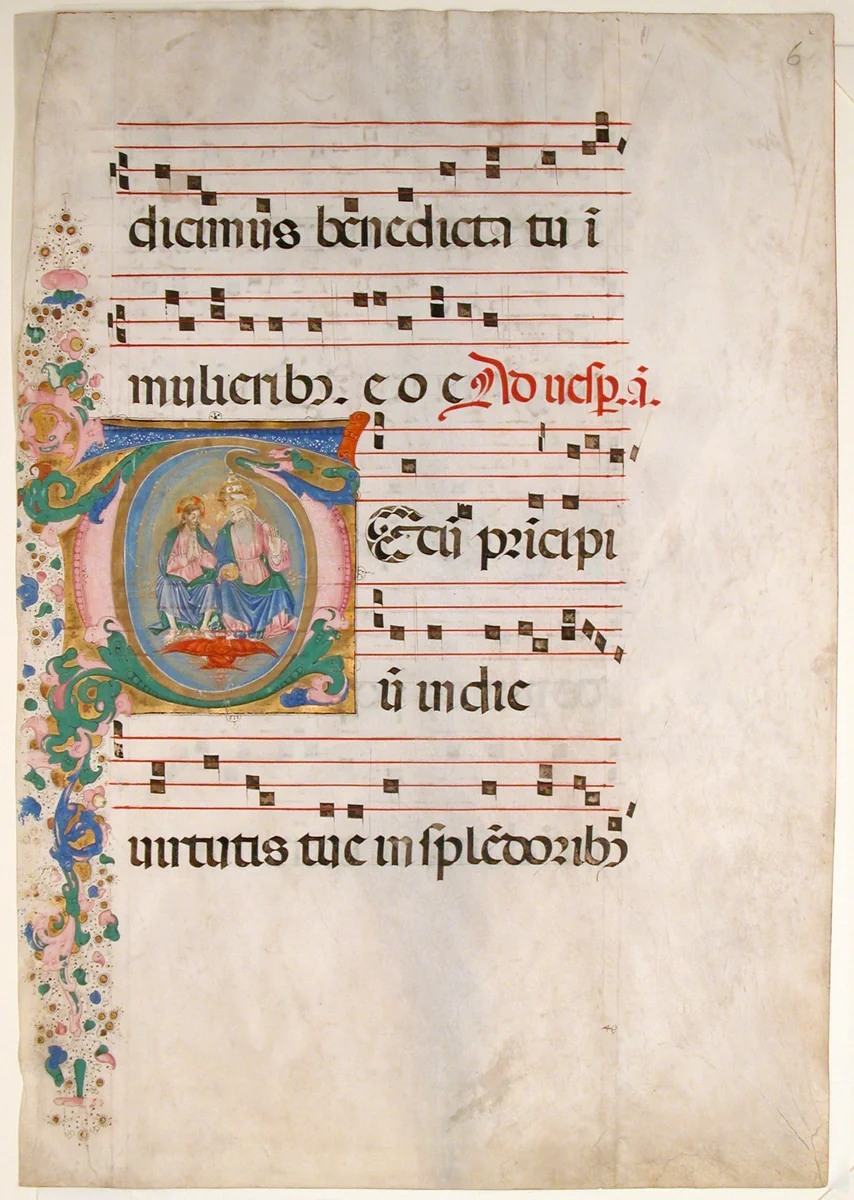 6
dicimus benedicta tu ī
mulieribꝫ. e o e Ad uesp̄. i.
TEcū prīcipi
ū in die
uirtutis tue in splēdoribꝫ